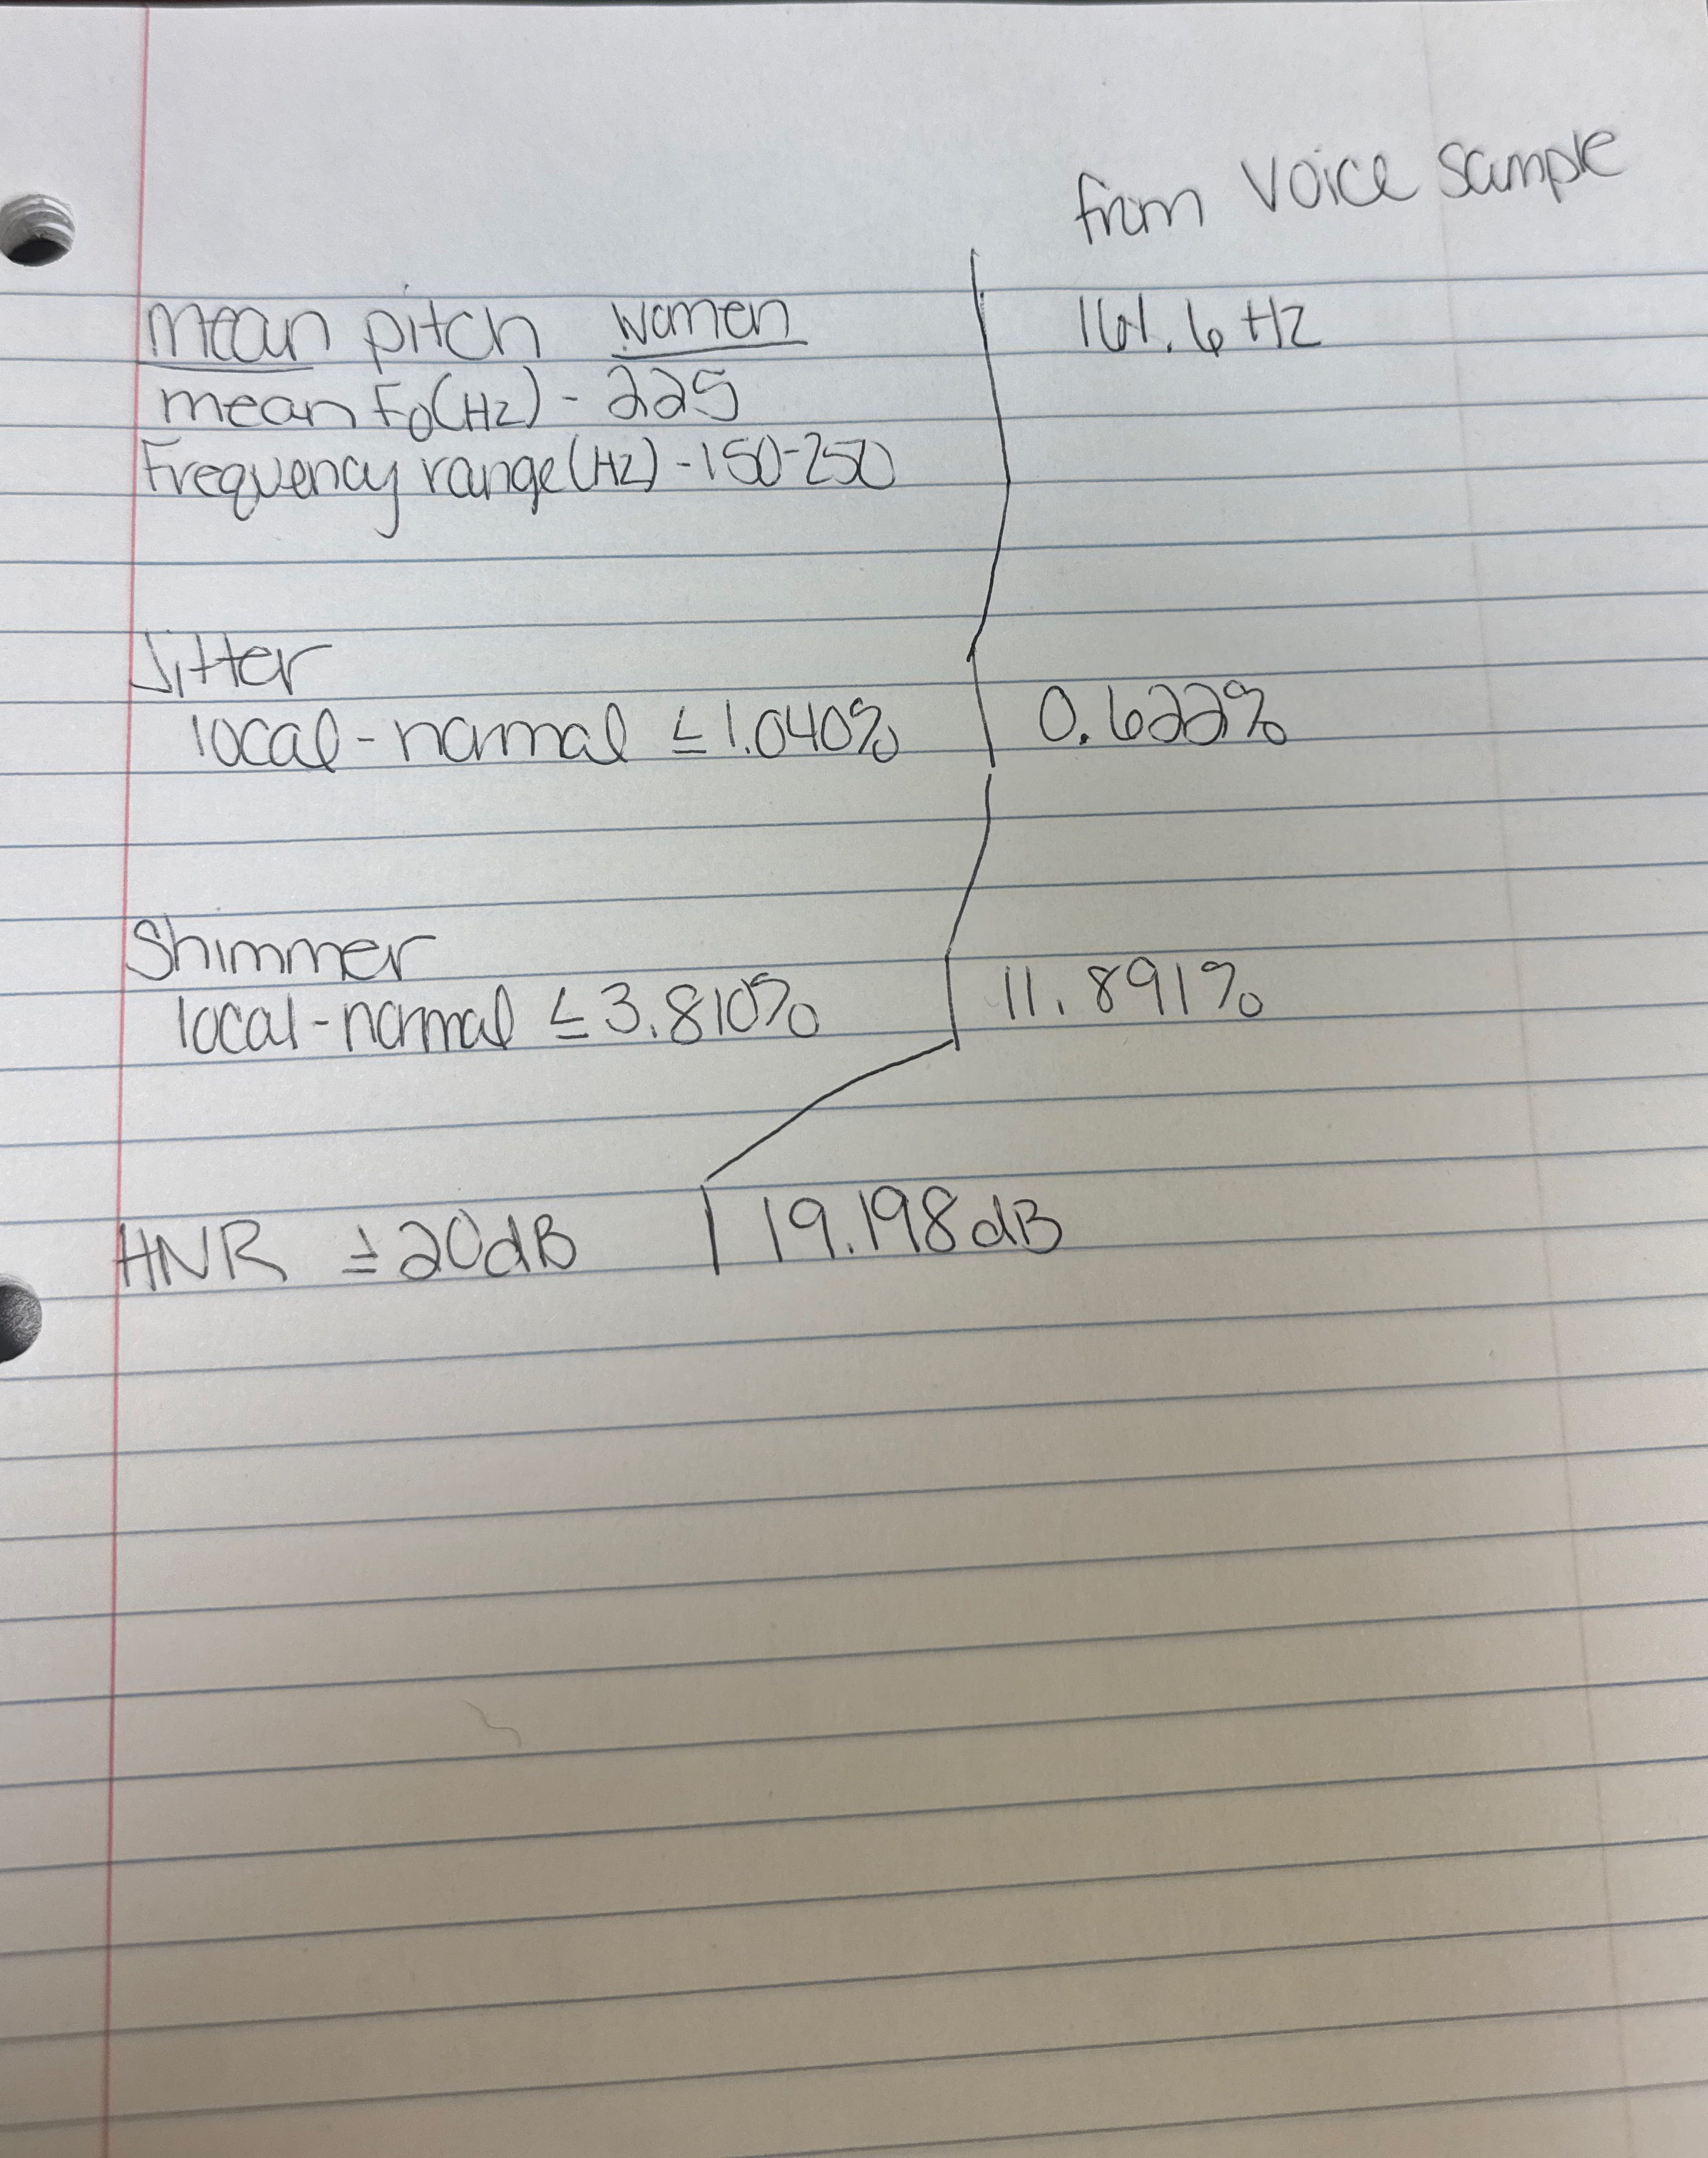 from Voice Sample
mean pitch women
161.6 Hz
mean Fo(Hz) - 225
Frequency range(Hz) - 150-250
Jitter
local - normal ≤ 1.040%
0.622%
Shimmer
local - normal ≤ 3.810%
11.891%
HNR ≥ 20dB
19.198dB